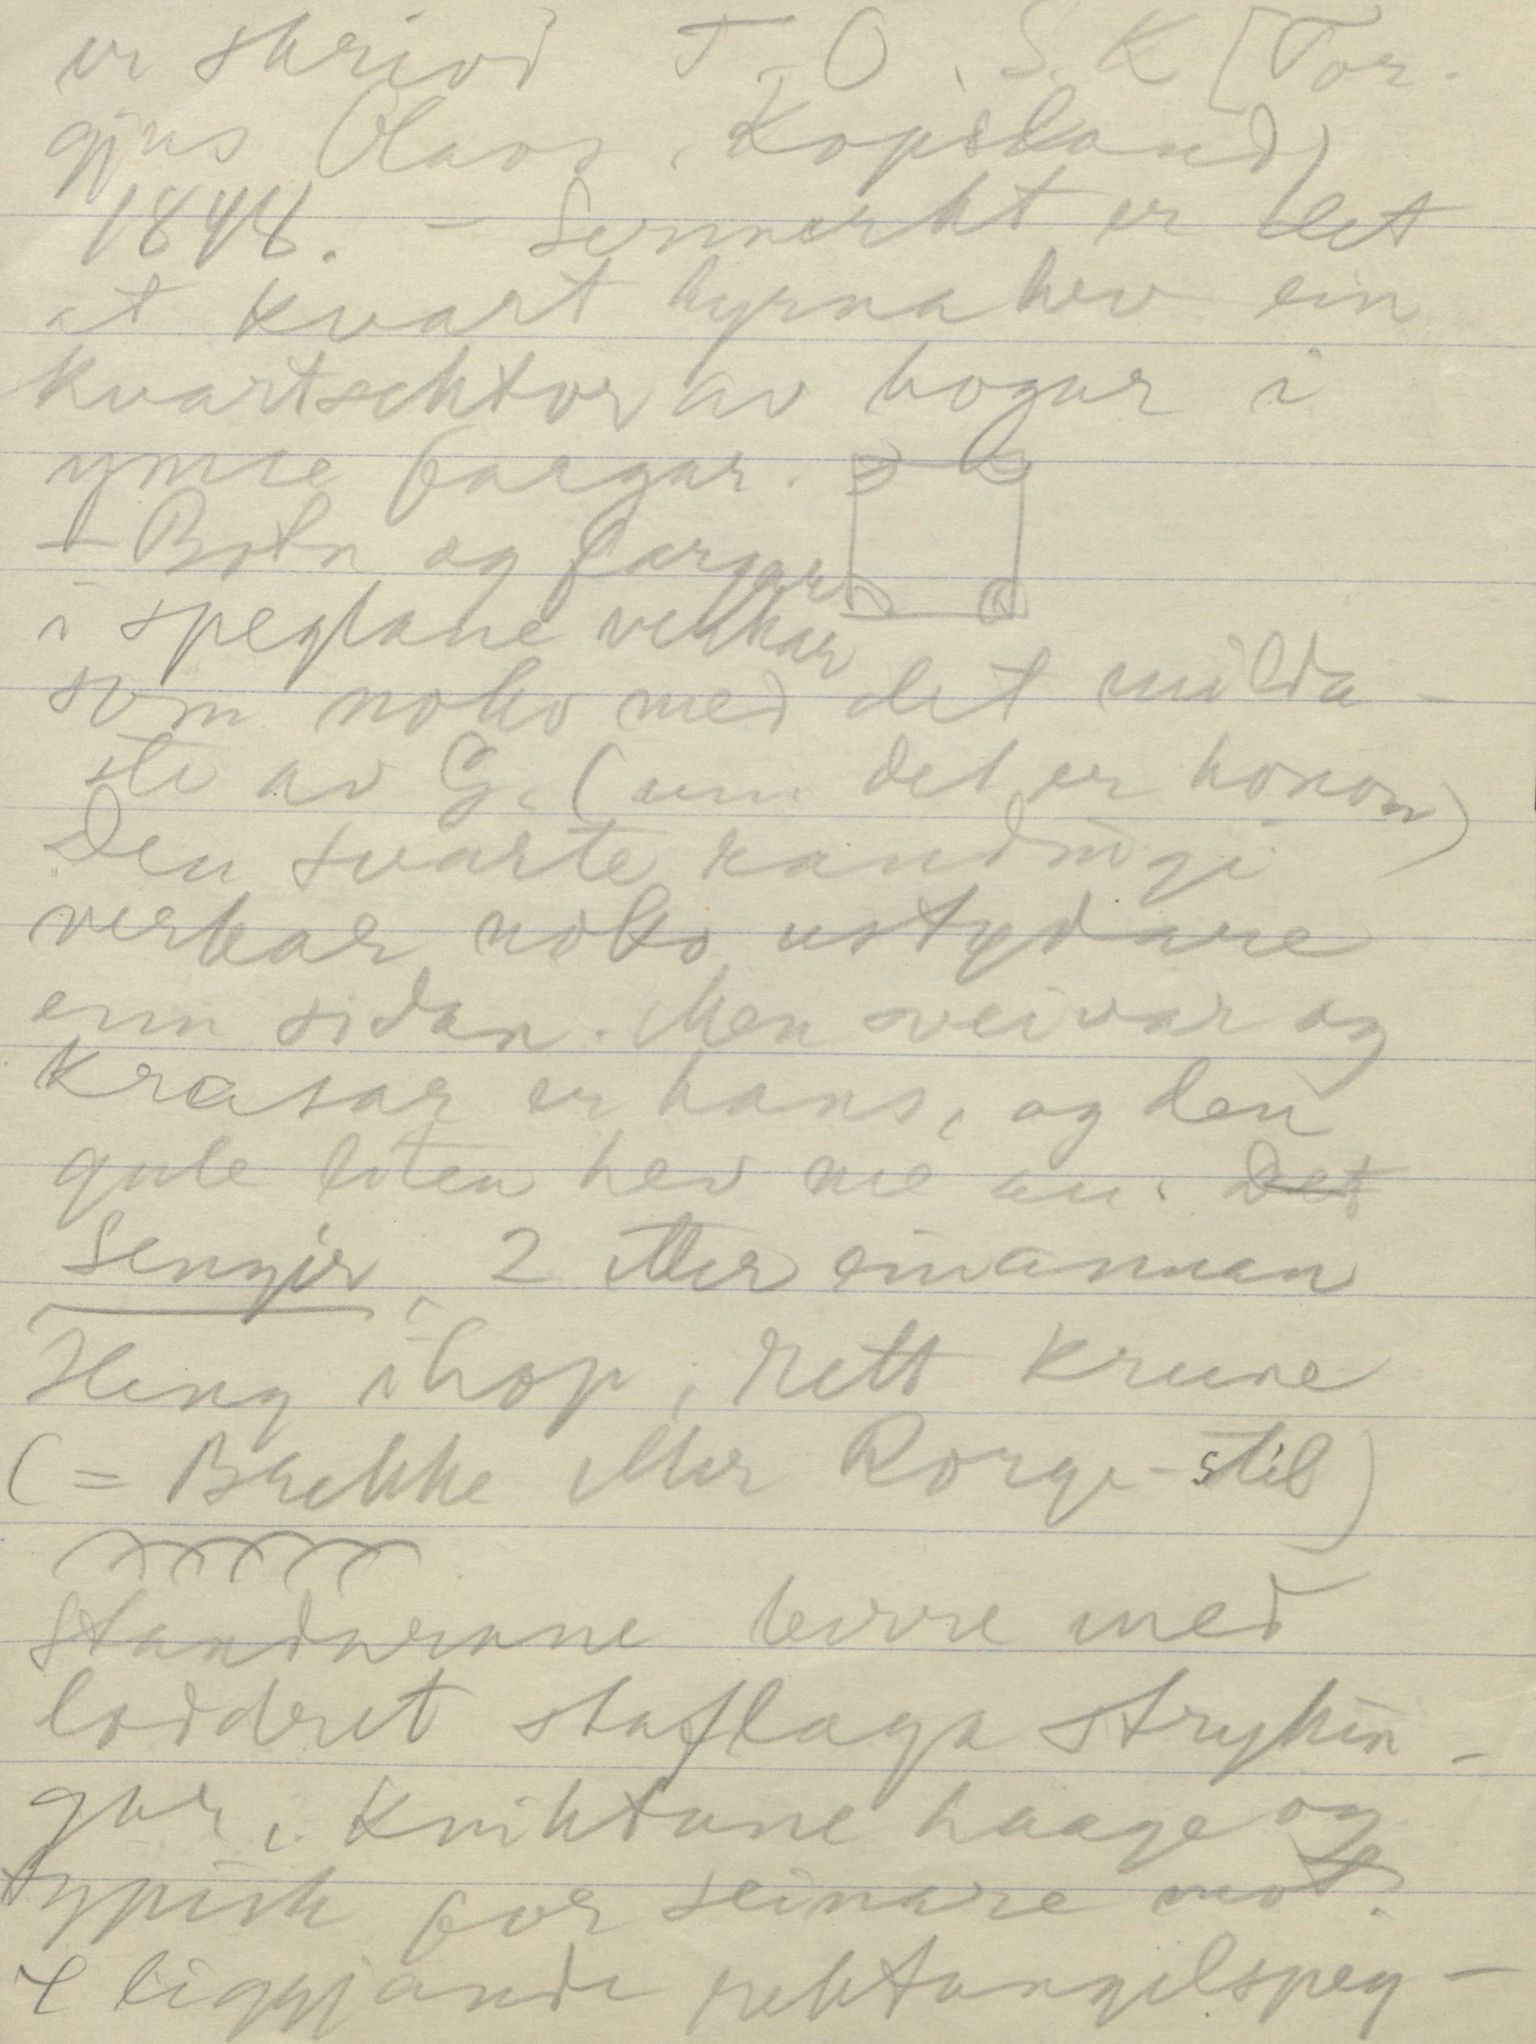 er skrivd T. O. S. K [Tor-
gjus Olavs. Kopsland)
1848. - Sermerkt er det
at kvart hyrna hev ein
kvartsektor av bogar i
ymse fargar.
- Botn og fargar
i speglane verkar
som noko med det milda-
ste av G. (um det er honom)
Den svarte randingi
verkar noko ustydare
enn sidan. Men sveivar og
krasar er hans, og den
gule liten hev me au. Det
Sengjer, 2 etter einannan
Heng ihop, Rett krune
(= Brekke eller Borge-stil)
Standarane berre med
loddret stavlaga strykin-
gar. Kniktane haage og
typisk for seinare mot.
4 liggjande rektangelspeg-